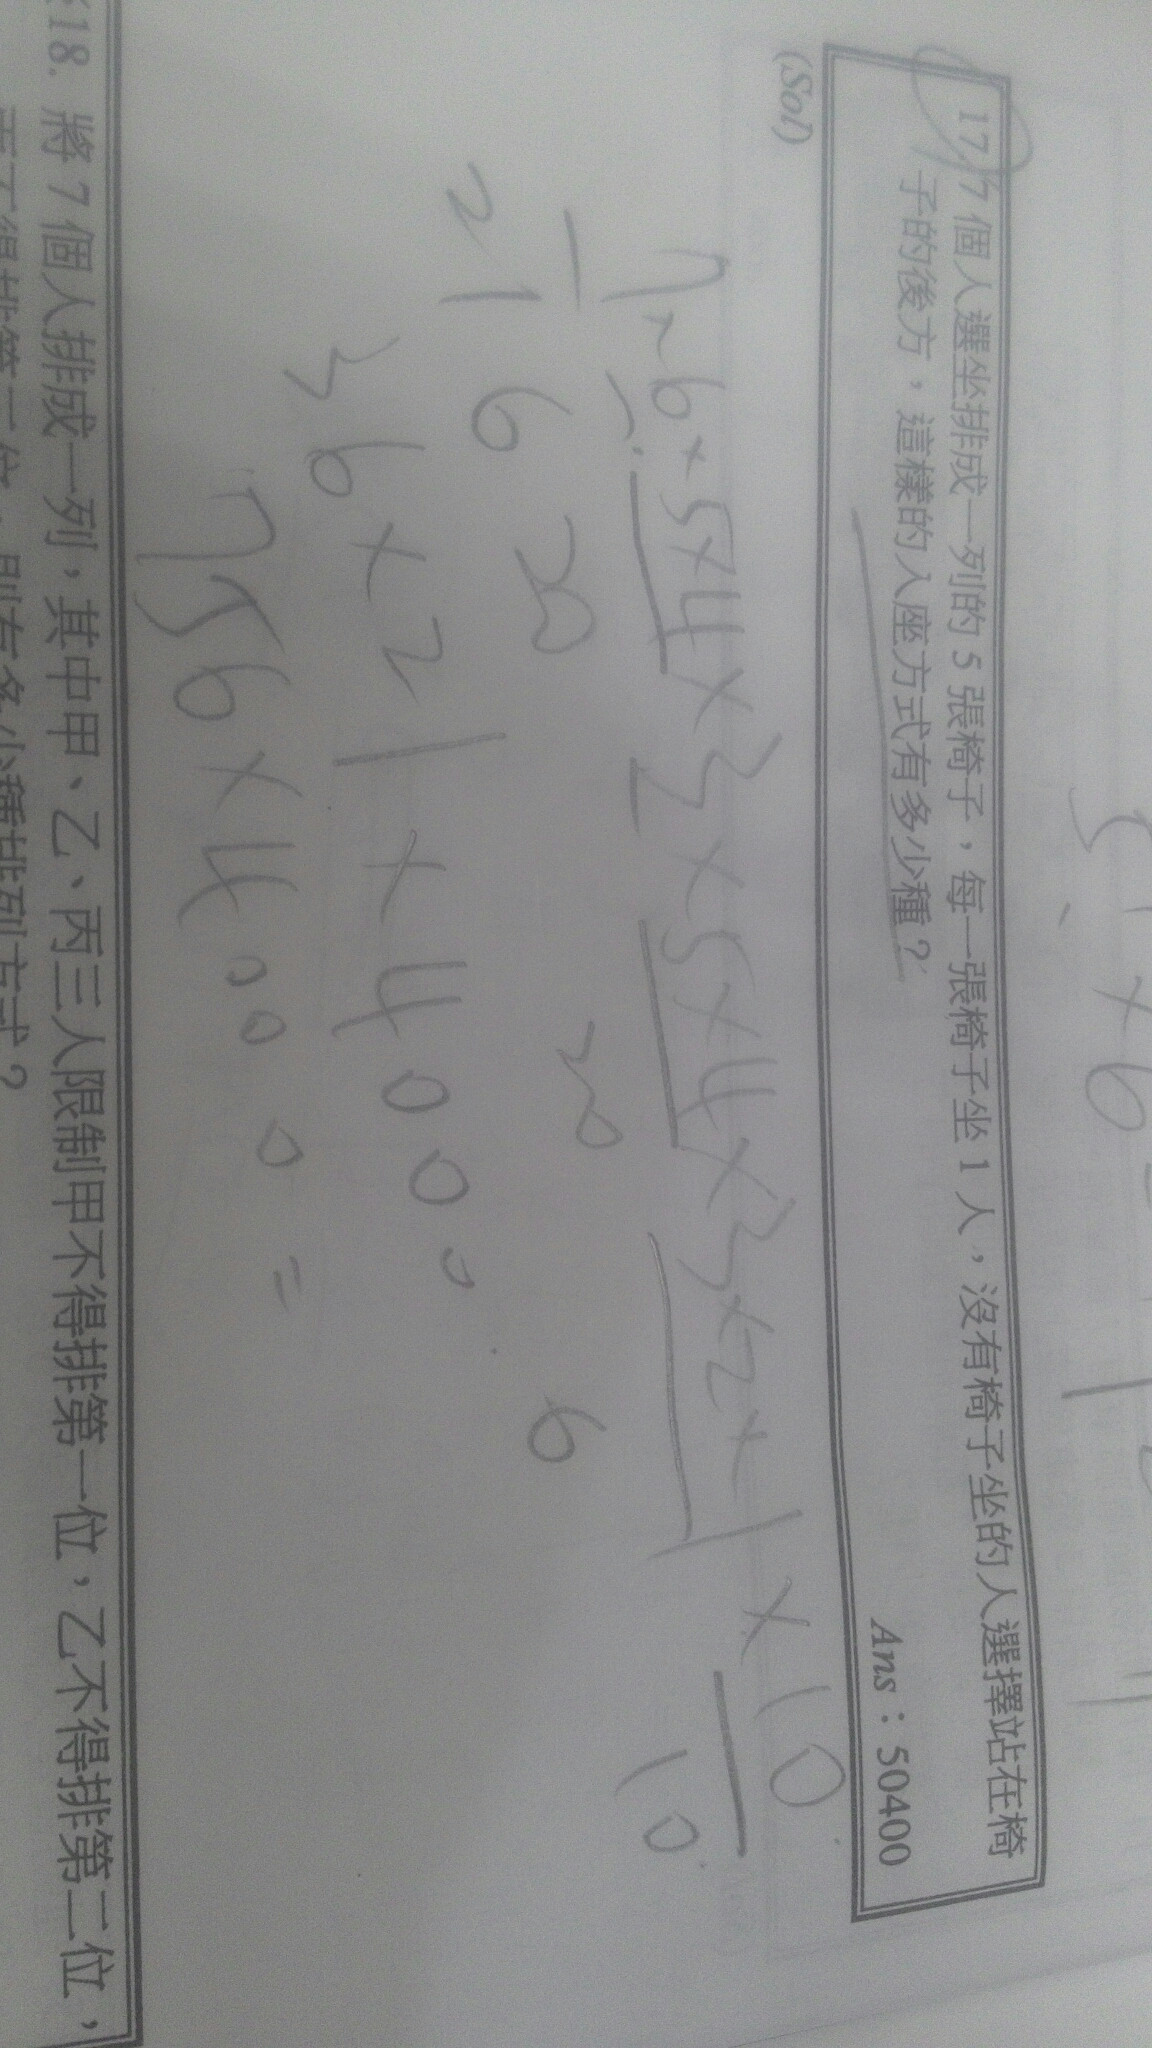 17. 7 個人選坐排成一列的 5 張椅子，每一張椅子坐 1 人，沒有椅子坐的人選擇站在椅
子的後方，這樣的入座方式有多少種？
Ans：50400
(Sol)
7×6×5×4×3×5×4×3×2×1×10
20 20 6 10
21 6
36×21×4000
756×4000=
18. 將 7 個人排成一列，其中甲、乙、丙三人限制甲不得排第一位，乙不得排第二位，